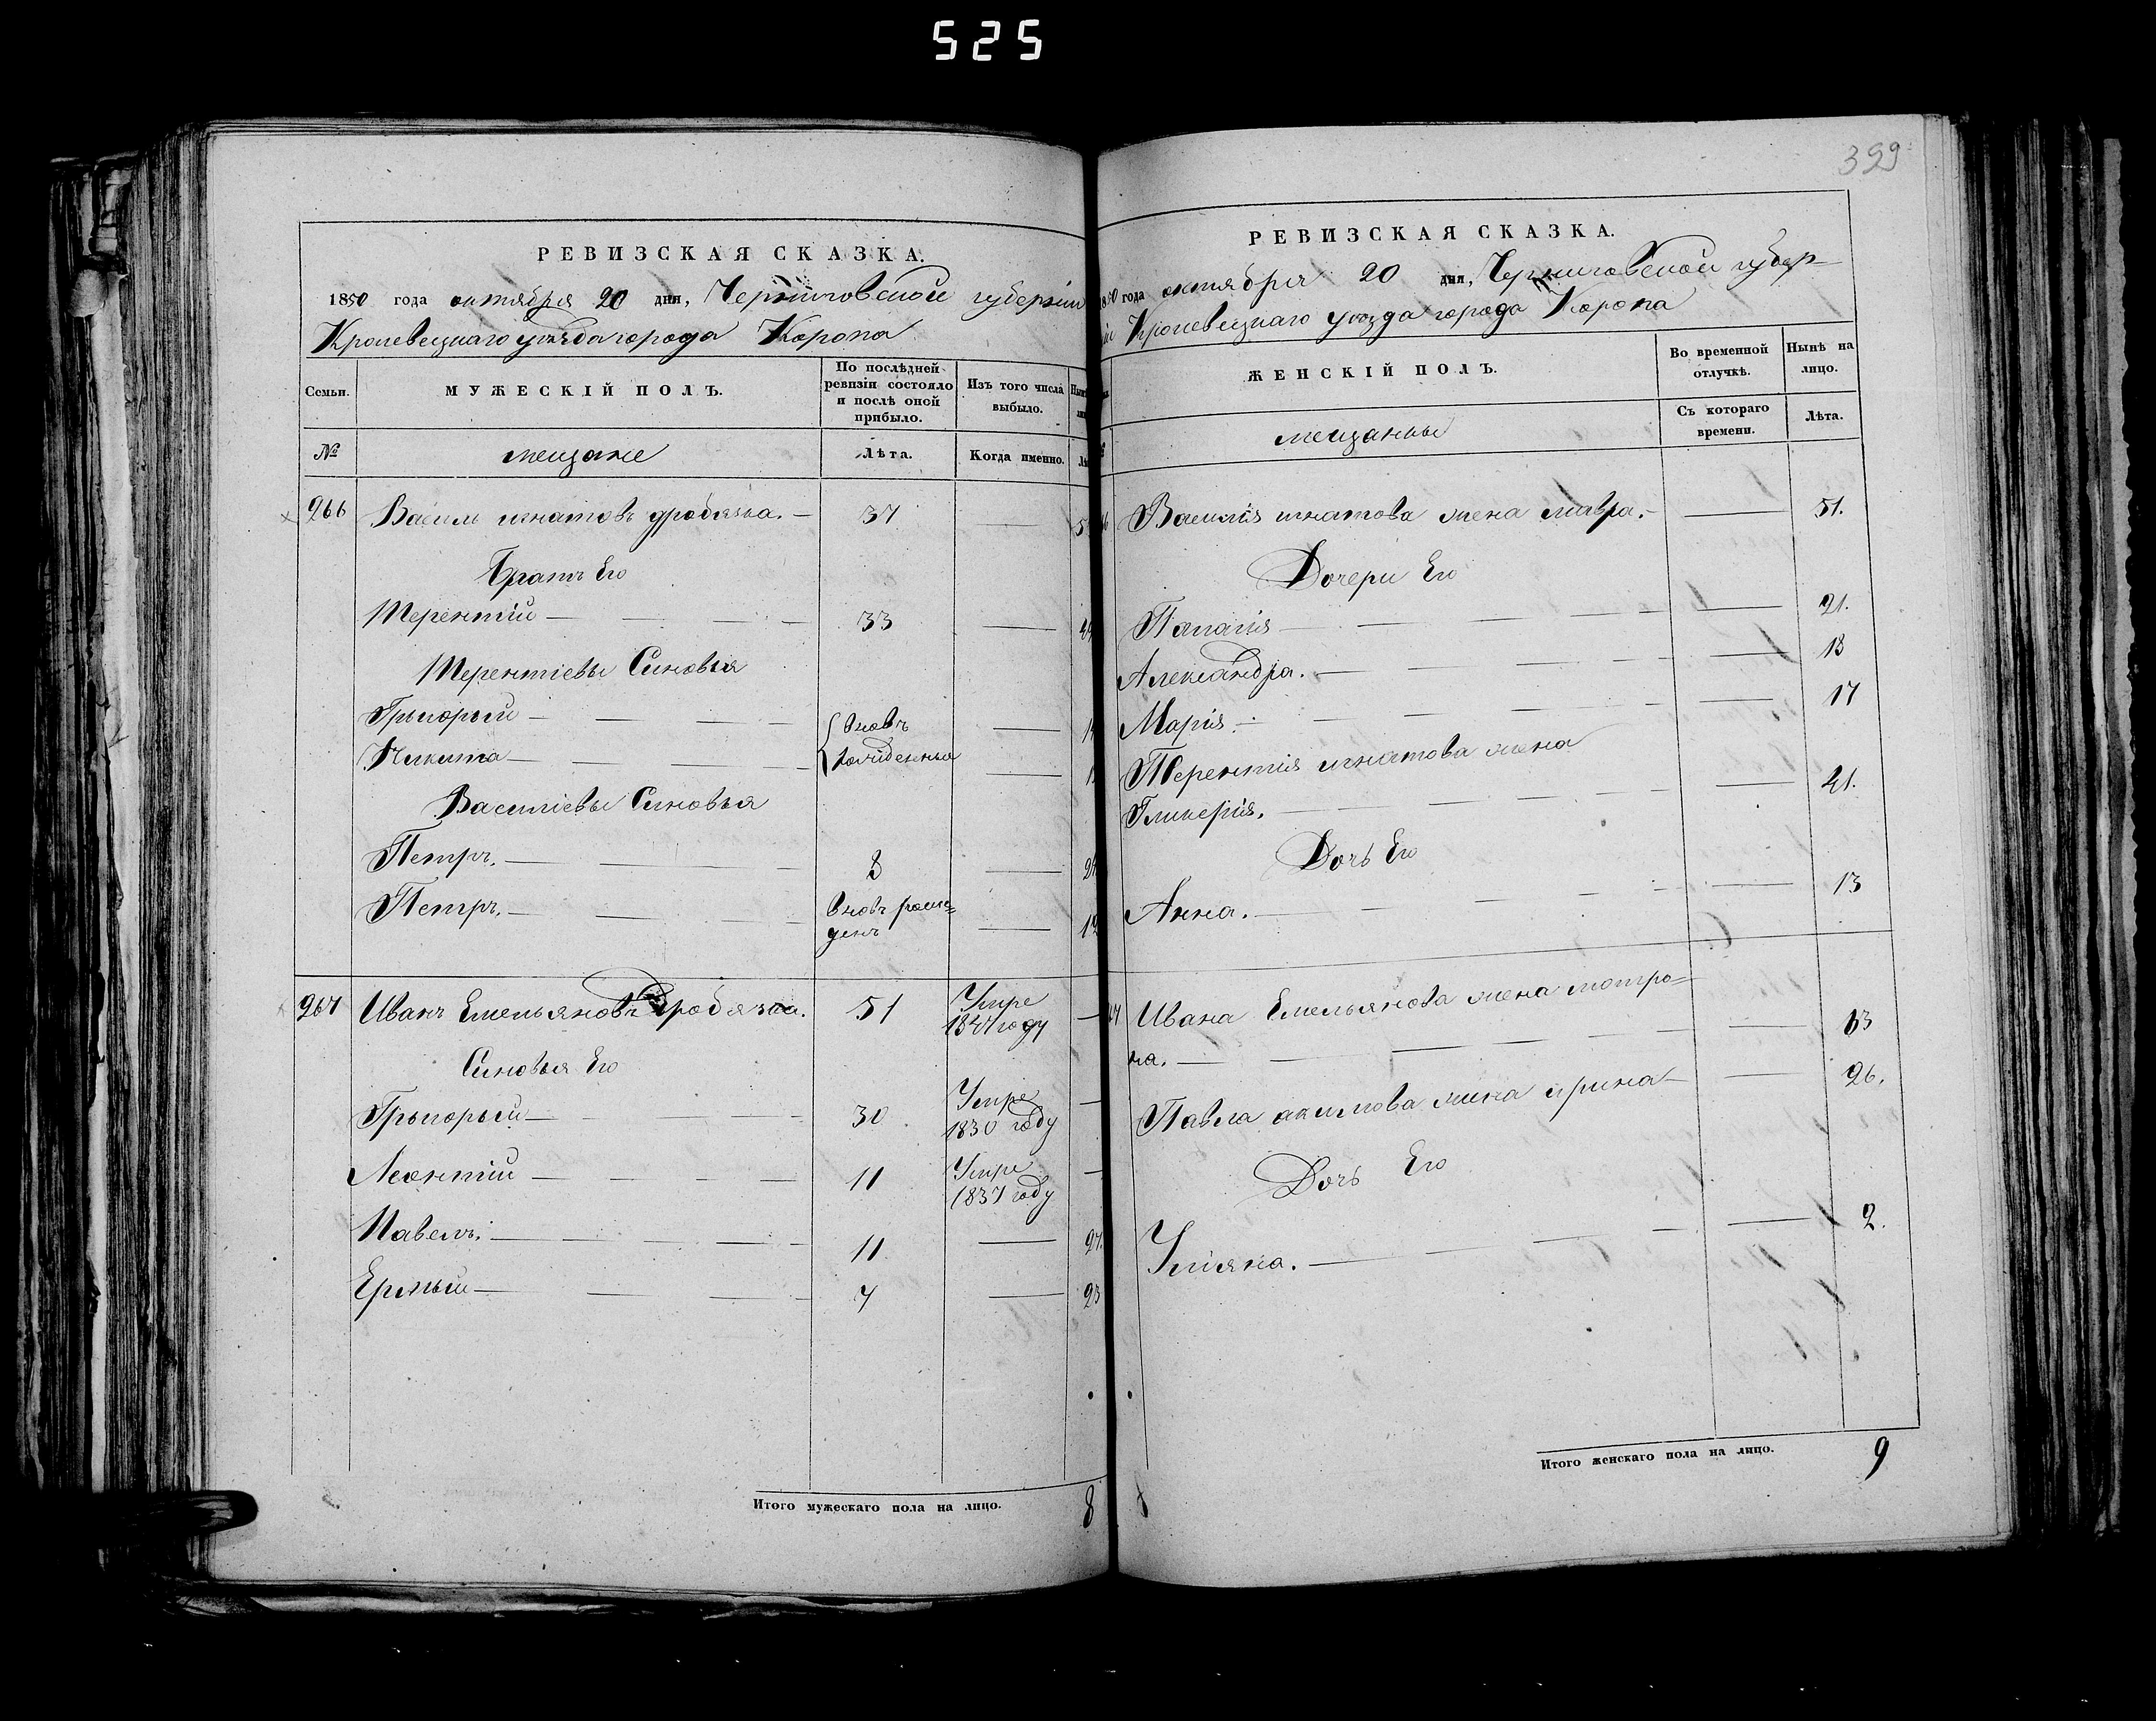 525
РЕВИЗСКАЯ СКАЗКА.
1850 года октября 20 дня, Черниговской губерніи
Кролевецкаго уѣзда города Коропа
Семьи.
МУЖЕСКІЙ ПОЛЪ.
По послѣдней ревизіи состояло и послѣ оной прибыло.
Изъ того числа выбыло.
№
мещане
Лѣта.
Когда именно.
266 Василь игнатовъ дробязка. 37
Братъ Его
Терентій 33
Терентіевы Синовья
Григорый { вновь
Никита рожденные
Василіевы Синовья
Петръ. 8
Петръ. вновь рож=
денъ
267 Иванъ Емельяновъ дробязка. 51 Умре
1847 году
Синовья Его
Григорый 30 Умре
1830 году
Леонтій 11 Умре
1837 году
Павелъ. 11
Ермый 7
Итого мужескаго пола на лицо. 8
399
РЕВИЗСКАЯ СКАЗКА.
1850 года октября 20 дня, Черниговской губер-
ніи Кролевецкаго уѣзда города Коропа
ЖЕНСКІЙ ПОЛЪ.
Во временной отлучкѣ.
Нынѣ на лицо.
мещанки
Съ котораго времени.
Лѣта.
Василія игнатова жена мавра. 51.
Дочери Его
Палагія 21.
Александра. 18
Марія. 17
Терентія игнатова жена
Гликерія. 41.
Дочь Его
Анна. 13
Ивана Емельянова жена мотро=
на. 63
Павла акимова жена ирина 26.
Дочь Его
Уліяна. 2.
Итого женскаго пола на лицо. 9